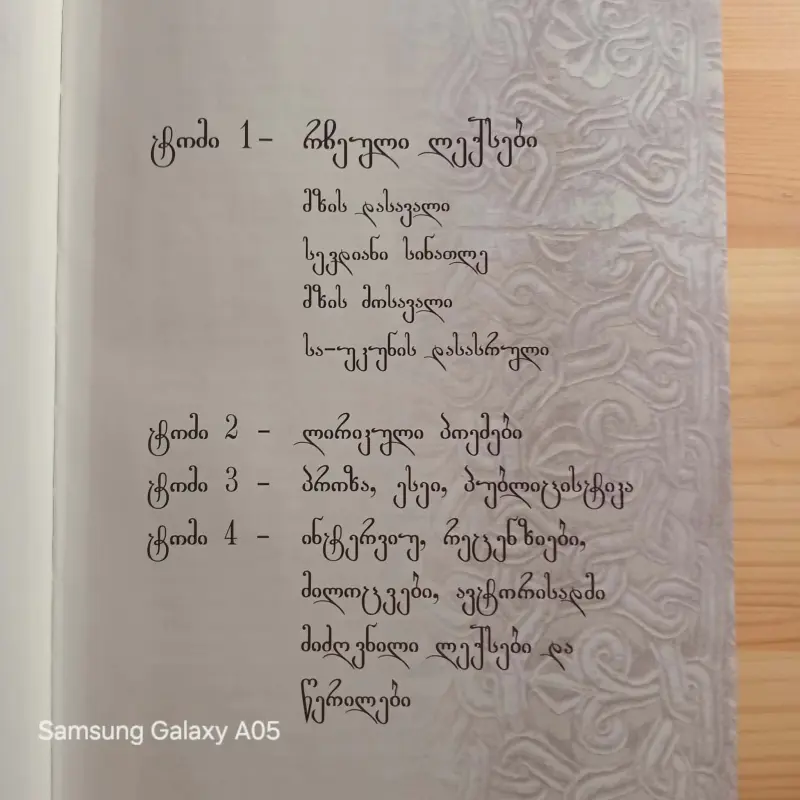 ტომი 1 - რჩეული ლექსები
მზის დასავალი
სევდიანი სინათლე
მზის მოსავალი
სა-უკუნის დასასრული
ტომი 2 - ლირიკული პოემები
ტომი 3 - პროზა, ესეი, პუბლიცისტიკა
ტომი 4 - ინტერვიუ, რეცენზიები,
მილოცვები, ავტორისადმი
მიძღვნილი ლექსები და
წერილები
Samsung Galaxy A05